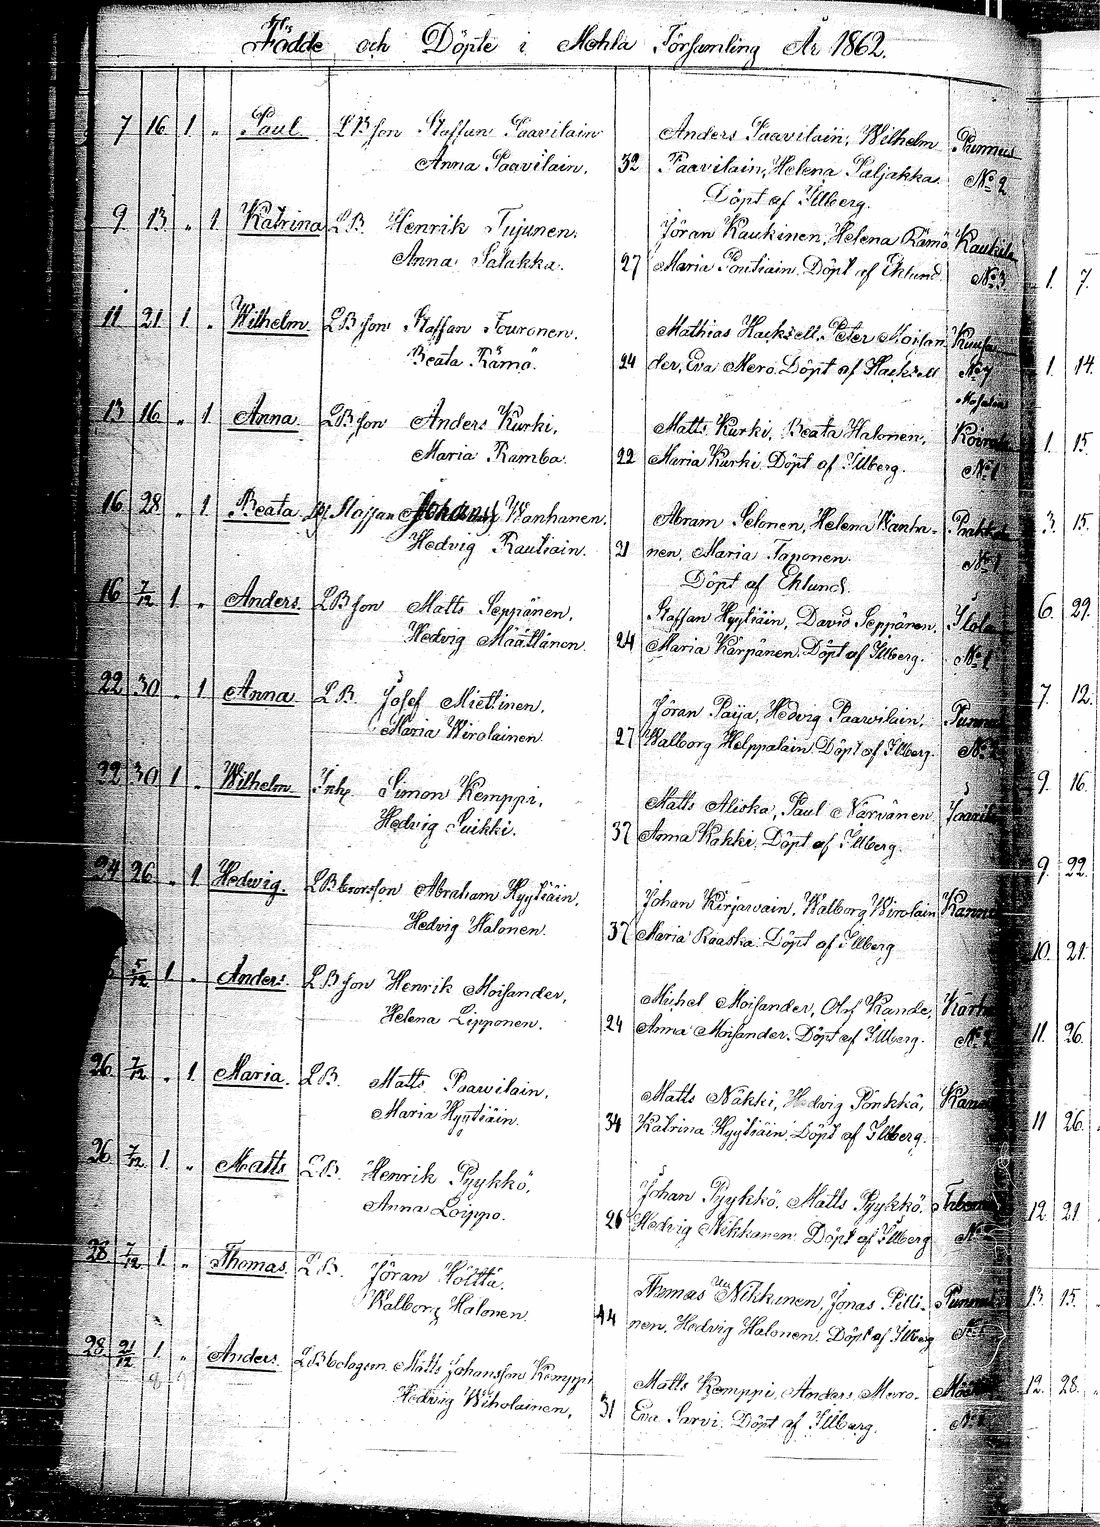 Födde och Döpte i Mohla Församling År 1862.
7 16 1 " Paul LBson Staffan Paavilain Anders Paavilain, Wilhelm Punnus
Anna Paavilain. 32 Paavilain, Helena Paljakka. No 2
Döpt af Illberg.
9 13 " 1 Katrina LB. Henrik Tujunen. Jöran Kaukinen, Helena Rämö Kaukila
Anna Salakka. 27 Maria Pontiain. Döpt af Eklund. No 3.
11 21 1 " Wilhelm LBson Staffan Touronen. Mathias Hacksell, Peter Moisan
Beata Rämö. 24 der, Eva Mero. Döpt af Hacksell No 7
13 16 " 1 Anna LBson Anders Kurki, Matts Kurki, Beata Halonen,
Maria Ramba. 22 Maria Kurki. Döpt af Illberg. No 1
16 28 " 1 Beata Staffan Wanhanen. Abram Selonen, Helena Wanha-
Hedvig Rautiain. 21 nen, Maria Taponen. No 1
Döpt af Eklund.
16 7/12 1 " Anders LBson Matts Seppänen, Staffan Hyytiäin, David Seppänen,
Hedvig Määttänen. 24 Maria Kärpänen. Döpt af Illberg. No 1
22 30 " 1 Anna LB. Josef Miettinen, Jöran Paija, Hedvig Paavilain,
Maria Wirolainen 27 Walborg Helppalain Döpt af Illberg. No 2
22 30 1 " Wilhelm Inh. Simon Kemppi, Matts Aliska, Paul Närvänen
Hedvig Suikki. 37 Anna Kakki. Döpt af Illberg.
24 26 " 1 Hedvig. LB brorson Abraham Hyytiäin, Johan Kirjavain, Walborg Wirolain
Hedvig Halonen. 37 Maria Raaska. Döpt af Illberg
5/12 1 " Anders. LBson Henrik Moisander, Michel Moisander, Olof Kande,
Helena Lipponen. 24 Anna Moisander. Döpt af Illberg. No 2
26 7/12 " 1 Maria. LB. Matts Paavilain, Matts Näkki, Hedvig Pönkkä,
Maria Hyytiäin. 34 Katrina Hyytiäin. Döpt af Illberg.
26 7/12 1 " Matts LB. Henrik Pyykkö, Johan Pyykkö, Matts Pyykkö,
Anna Loippo. 26 Hedvig Nikkanen. Döpt af Illberg
28. 7/12 1 " Thomas. LB. Jöran Höltta. Thomas Nikkinen, Jonas Pelli-
Walborg Halonen 44 nen, Hedvig Halonen. Döpt af Illberg
28. 21/12 1 " Anders. LBbolagsm. Matts Johansson Kemppi Matts Kemppi, Anders Mero.
Hedvig Wiholainen, 31 Eva Sarvi. Döpt af Illberg.
1. 7.
1 14.
1 15.
3. 15.
6. 29.
7. 12.
9. 16.
9. 22.
10. 21.
11. 26.
11 26.
12. 21
13. 15.
12. 28.